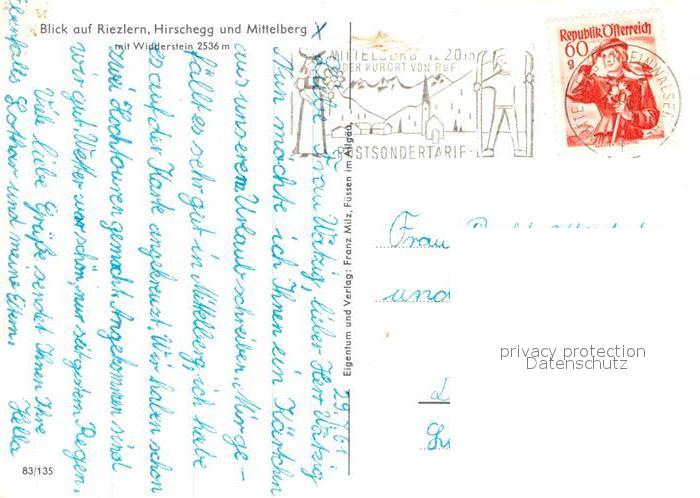 Blick auf Riezlern, Hirschegg und Mittelberg
mit Widderstein 2536 m
MITTELBERG 1220m
DER KURORT VON RUF
POSTSONDERTARIF
Republik Österreich
60
g
Eigentum und Verlag: Franz Milz, Füssen im Allgäu
29.7.61
Liebe Frau Wätzig, lieber Herr Wätzig
Nun möchte ich Ihnen ein Kärtchen
aus unserem Urlaub schreiben. Mir ge-
fällt es sehr gut in Mittelberg, ich habe
es auf der Karte angekreuzt. Wir haben schon
zwei Hochtouren gemacht. Angekommen sind
wir gut. Wetter war schön, nur seit gestern Regen.
Viele liebe Grüße sendet Ihnen Ihre
Hella
Ebenfalls Lothar und meine Eltern.
Frau
und
83/135
privacy protection
Datenschutz